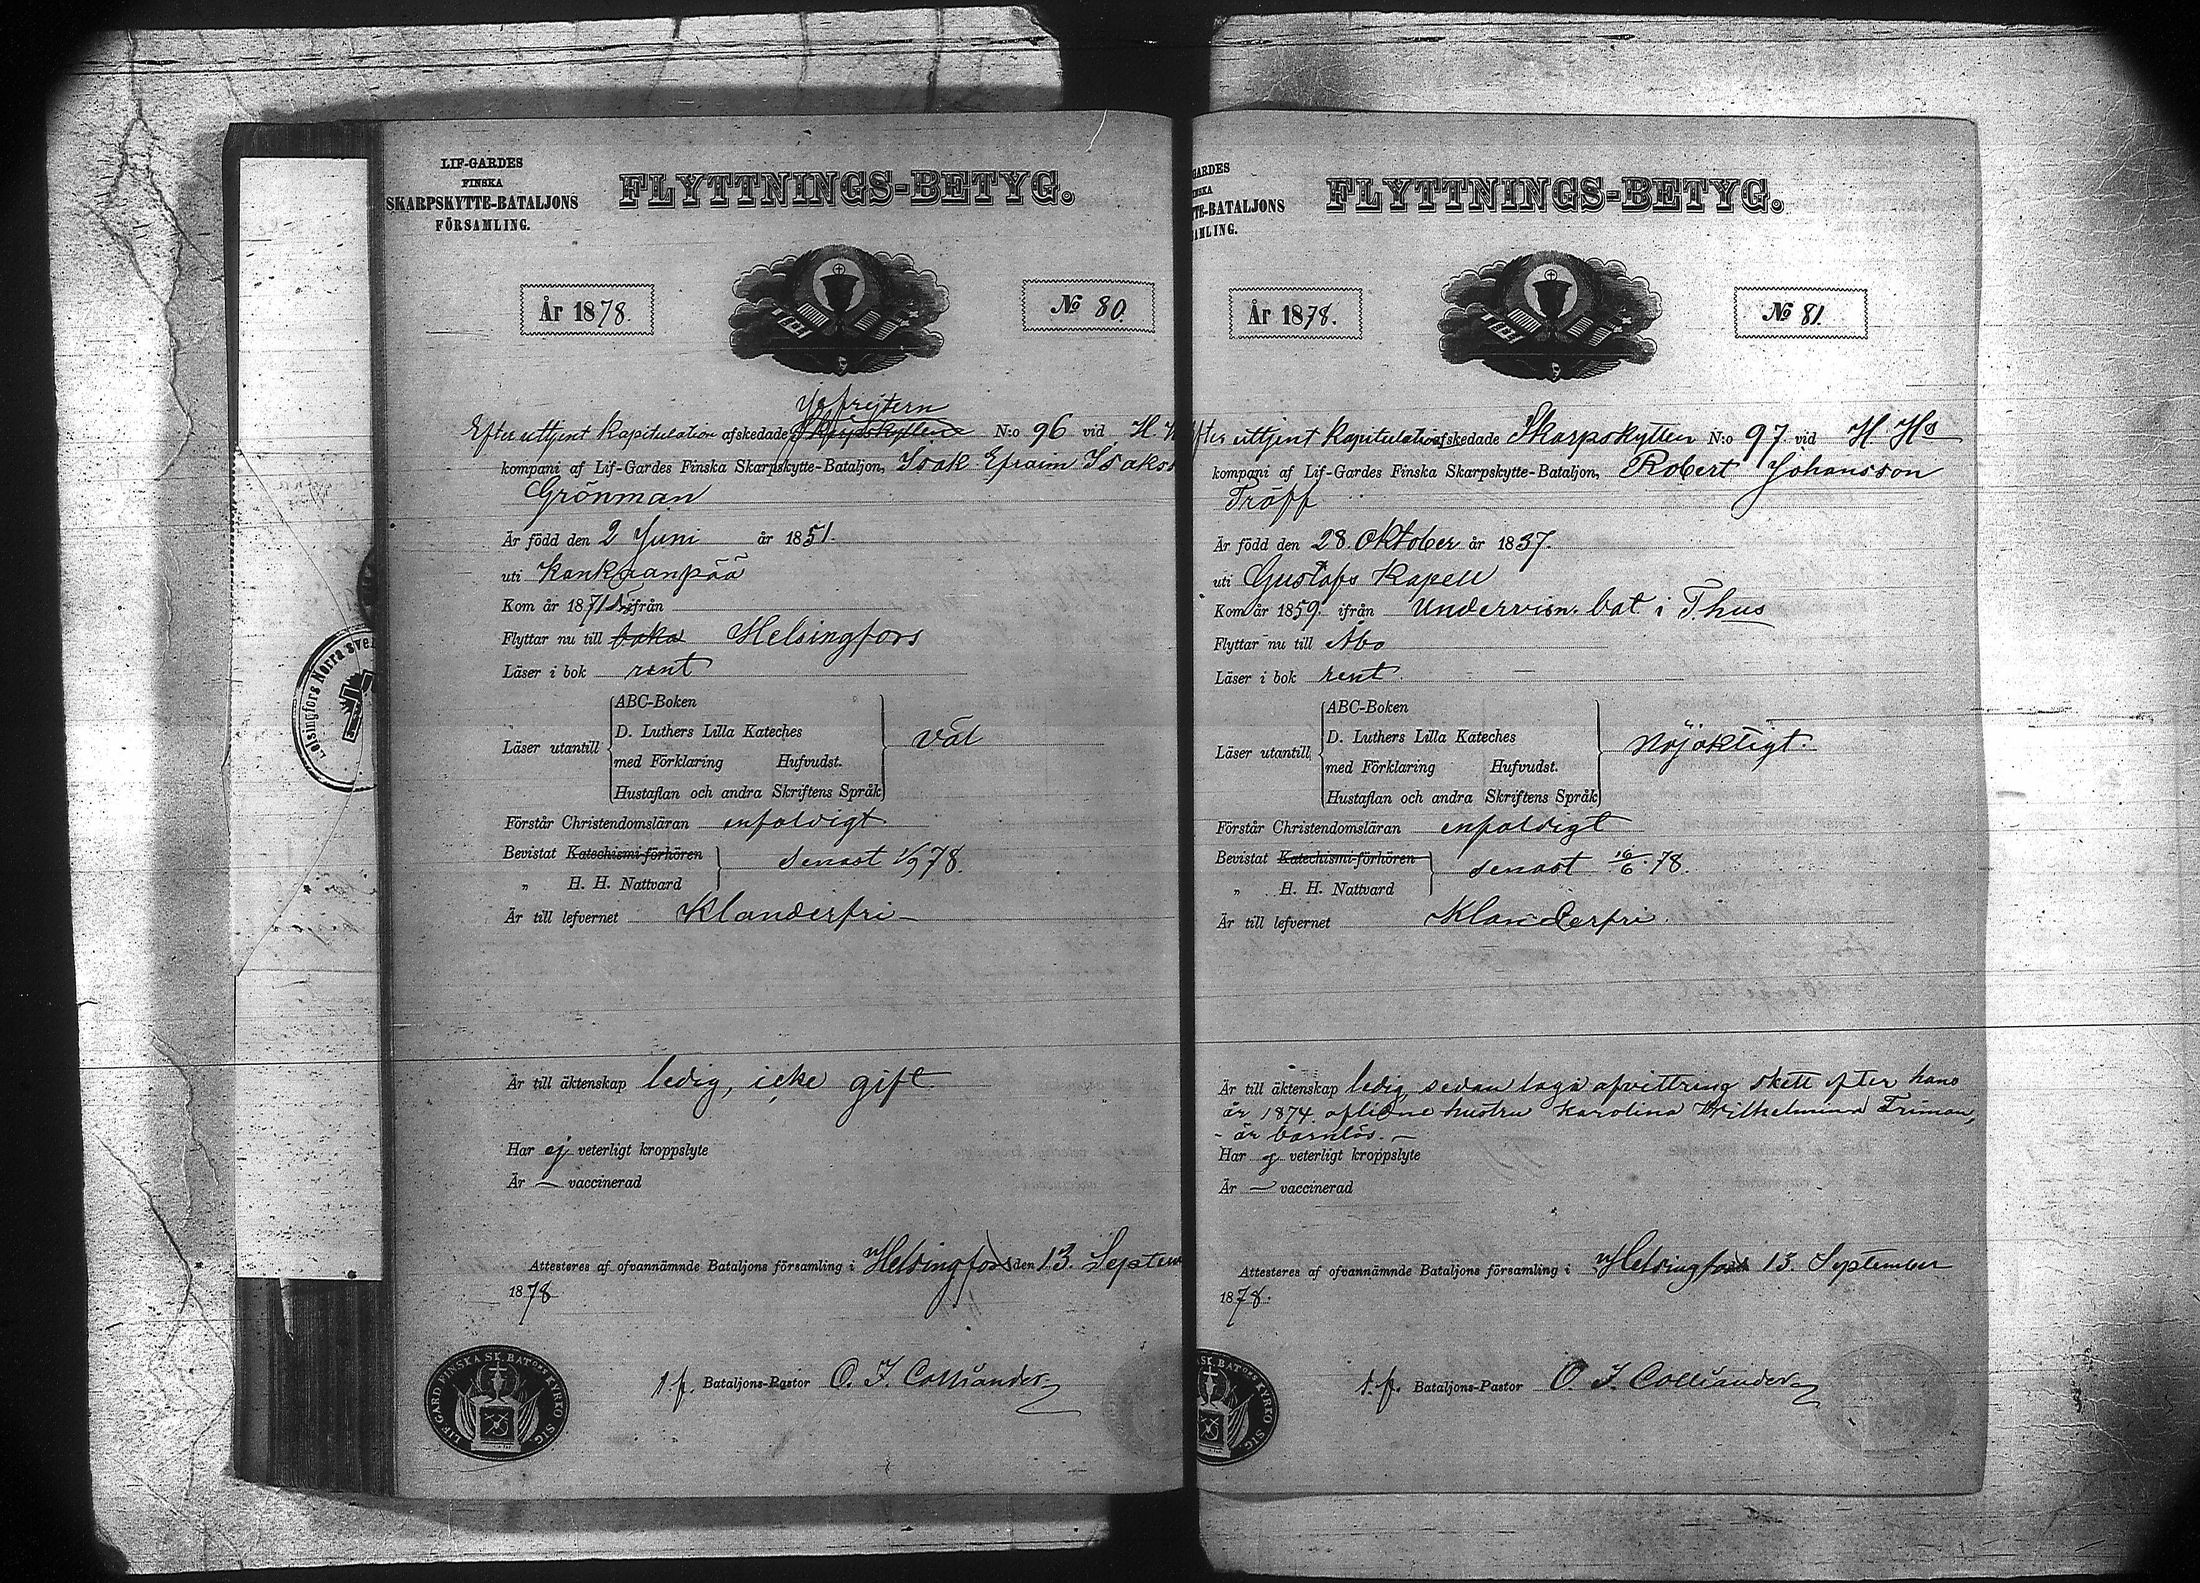 LIF-GARDES
FINSKA
SKARPSKYTTE-BATALJONS
FÖRSAMLING.
FLYTTNINGS-BETYG.
År 1878.
No 80.
Gefrejtern
Efter uttjent Kapitulation afskedade Skarpskytten N:o 96 vid H.
kompani af Lif-Gardes Finska Skarpskytte-Bataljon, Isak Efraim Isaks
Grönman
Är född den 2 Juni år 1851.
uti Kankaanpää
Kom år 1871 ifrån
Flyttar nu till Helsingfors
Läser i bok rent
ABC-Boken
D. Luthers Lilla Kateches
Läser utantill väl
med Förklaring Hufvudst.
Hustaflan och andra Skriftens Språk
Förstår Christendomsläran enfaldigt
Bevistat Katechismi-förhören senast 1/9 78.
„ H. H. Nattvard
Är till lefvernet Klanderfri
Är till äktenskap ledig, icke gift
Har ej veterligt kroppslyte
Är — vaccinerad
Attesteras af ofvannämnde Bataljons församling i Helsingfors den 13. Septem
1878
t.f. Bataljons-Pastor O. F. Colliander
LIF. GARD. FINSKA SK. BATORS KYRKO SIG.
Helsingfors Norra sve
GARDES
TE-BATALJONS
AMLING.
FLYTTNINGS-BETYG.
År 1878.
No 81.
fter uttjent Kapitulation afskedade Skarpskytten N:o 97 vid H. Hs
kompani af Lif-Gardes Finska Skarpskytte-Bataljon, Robert Johansson
Träff
Är född den 28. Oktober år 1837.
uti Gustafs Kapell
Kom år 1859. ifrån Undervisn. bat i T.hus
Flyttar nu till Åbo
Läser i bok rent.
ABC-Boken
D. Luthers Lilla Kateches
Läser utantill Nöjaktigt.
med Förklaring Hufvudst.
Hustaflan och andra Skriftens Språk
Förstår Christendomsläran enfaldigt
Bevistat Katechismi-förhören senast 16/6 78.
„ H. H. Nattvard
Är till lefvernet Klanderfri.
Är till äktenskap ledig, sedan laga afvittring skett efter hans
år 1874 aflidne hustru Karolina Wilhelmina Friman,
- är barnlös. -
Har ej veterligt kroppslyte
Är — vaccinerad
Attesteras af ofvannämnde Bataljons församling i Helsingfors 13. September
1878.
t.f. Bataljons-Pastor O. F. Colliander
SK. BATORS KYRKO SIG.